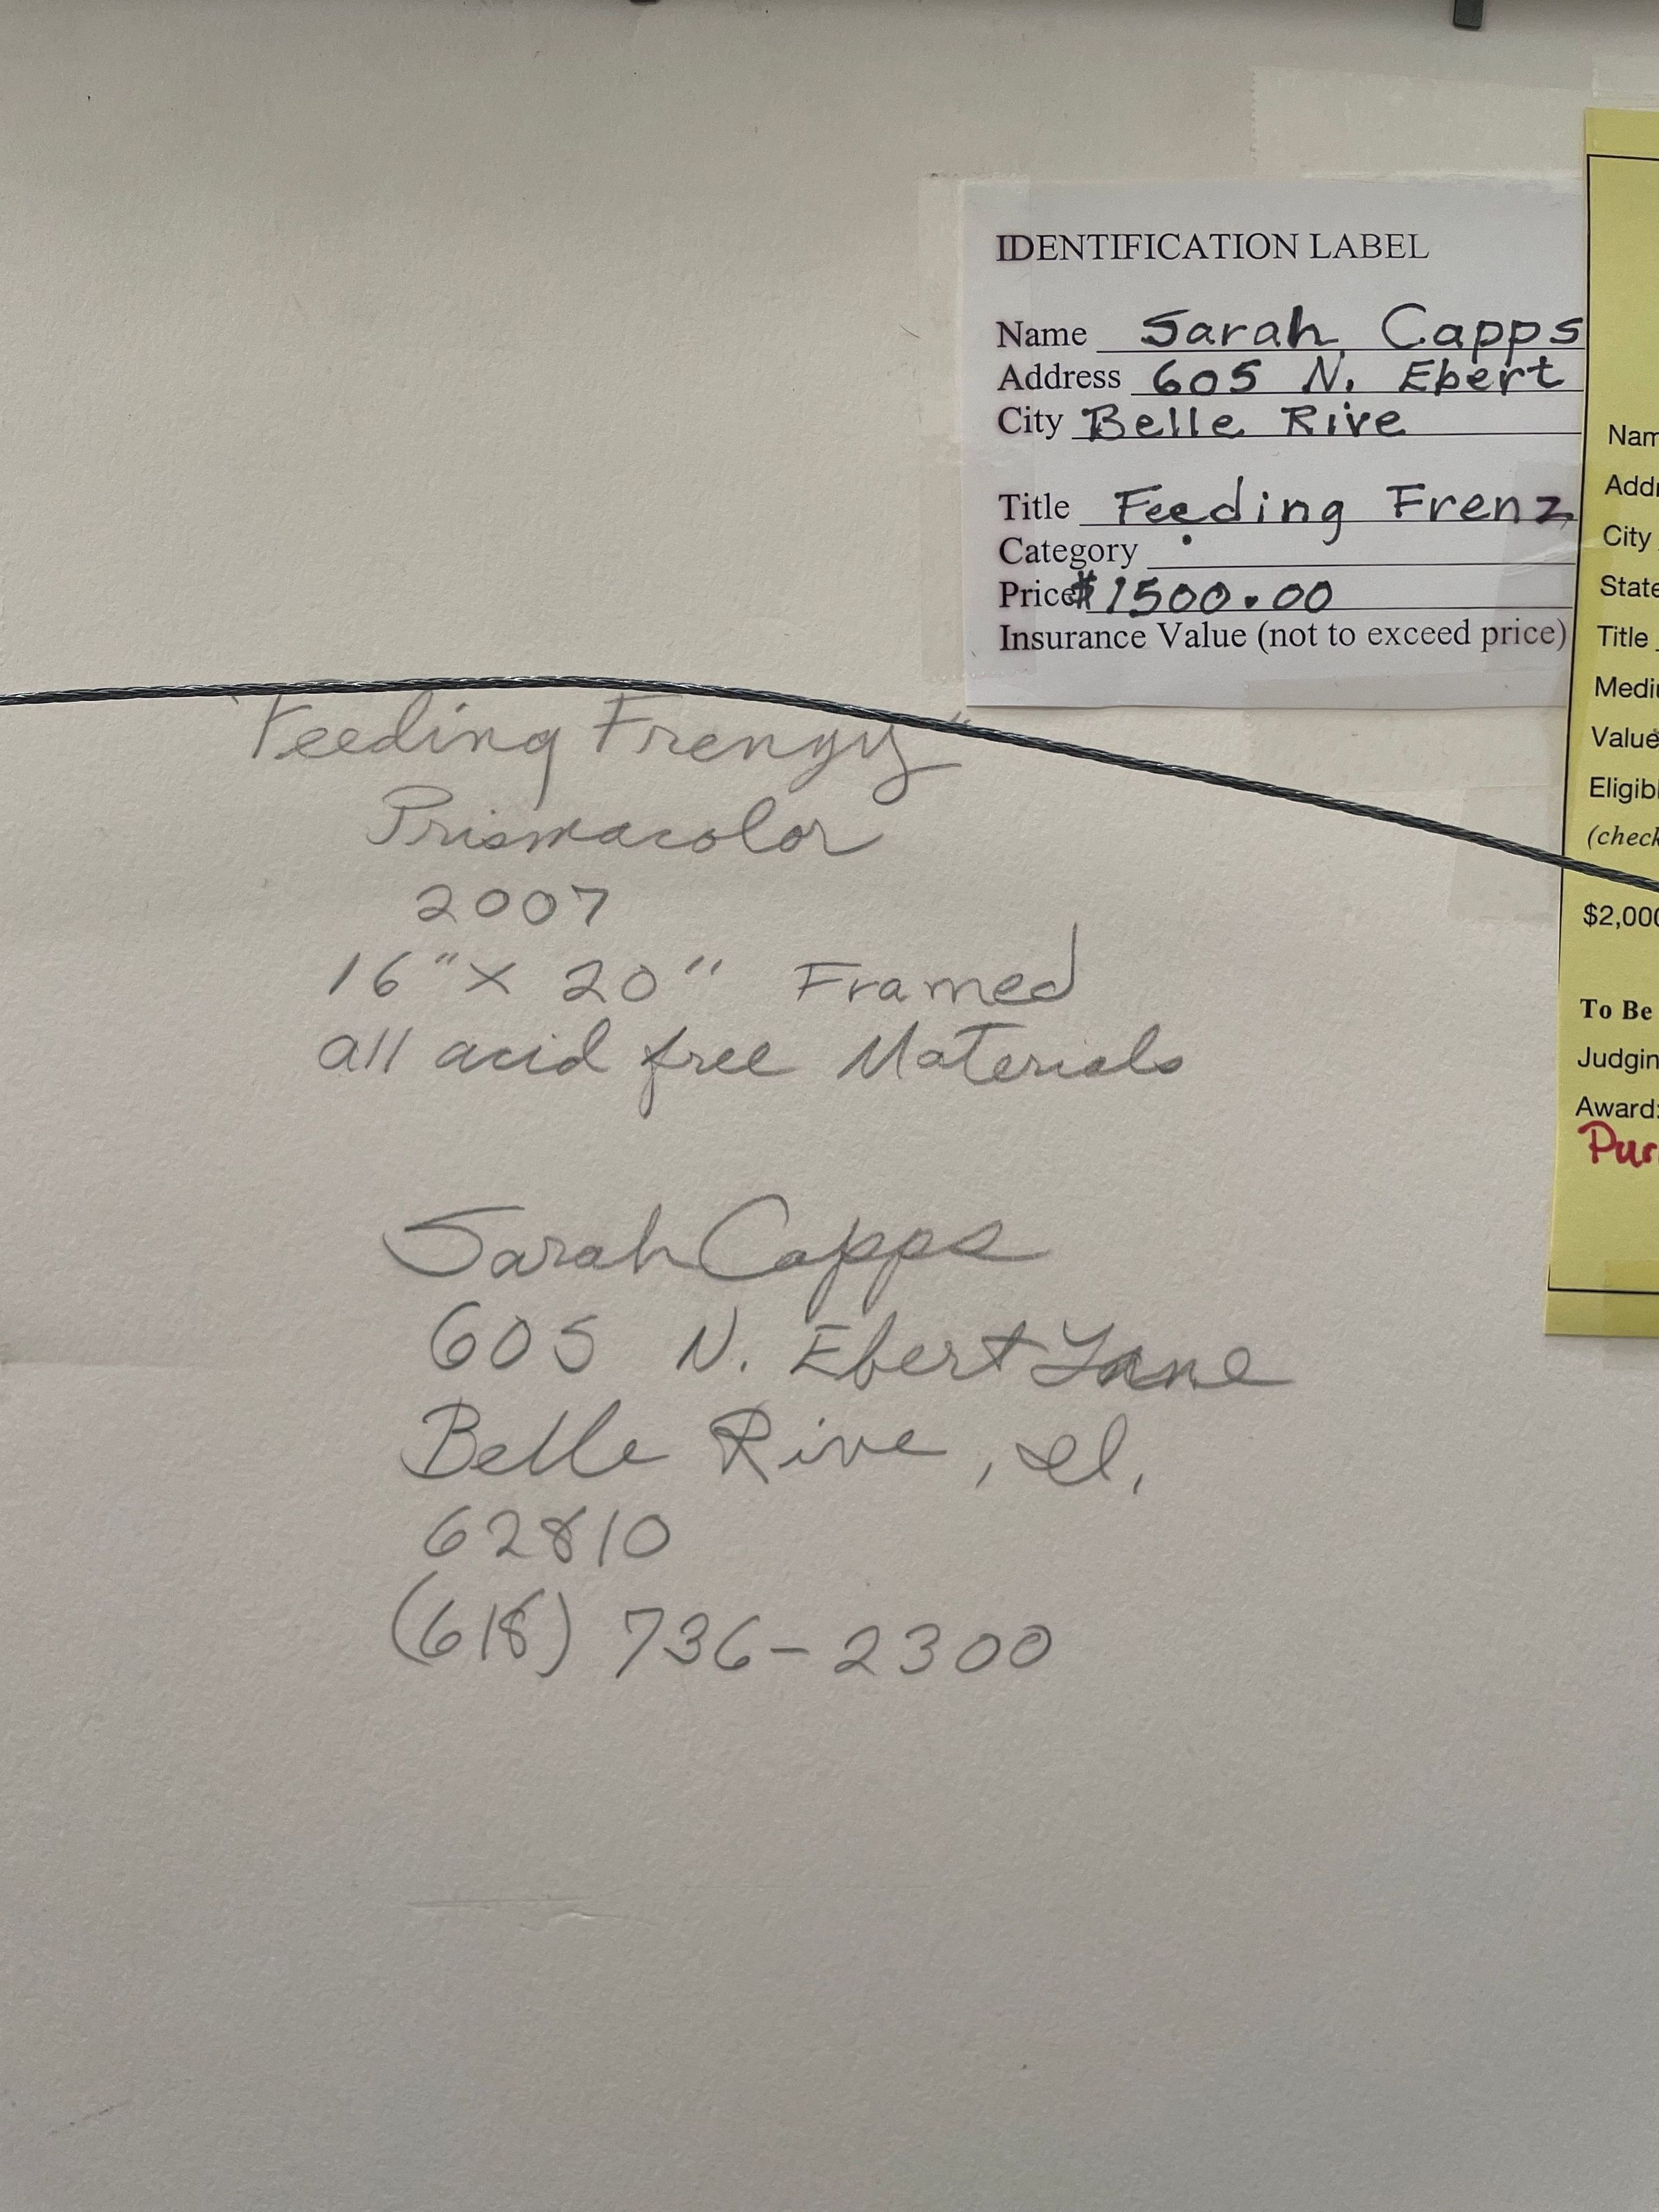 IDENTIFICATION LABEL
Name Sarah Capps
Address 605 N. Ebert
City Belle Rive
Title Feeding Frenz
Category
Price $1500.00
Insurance Value (not to exceed price)
"Feeding Frenzy"
Prismacolor
2007
16" X 20" Framed
all acid free Materials
Sarah Capps
605 N. Ebert Lane
Belle Rive, Il.
62810
(618) 736-2300
Nam
Addr
City
State
Title
Mediu
Value
Eligibl
(check
$2,000
To Be
Judgin
Award:
Pur